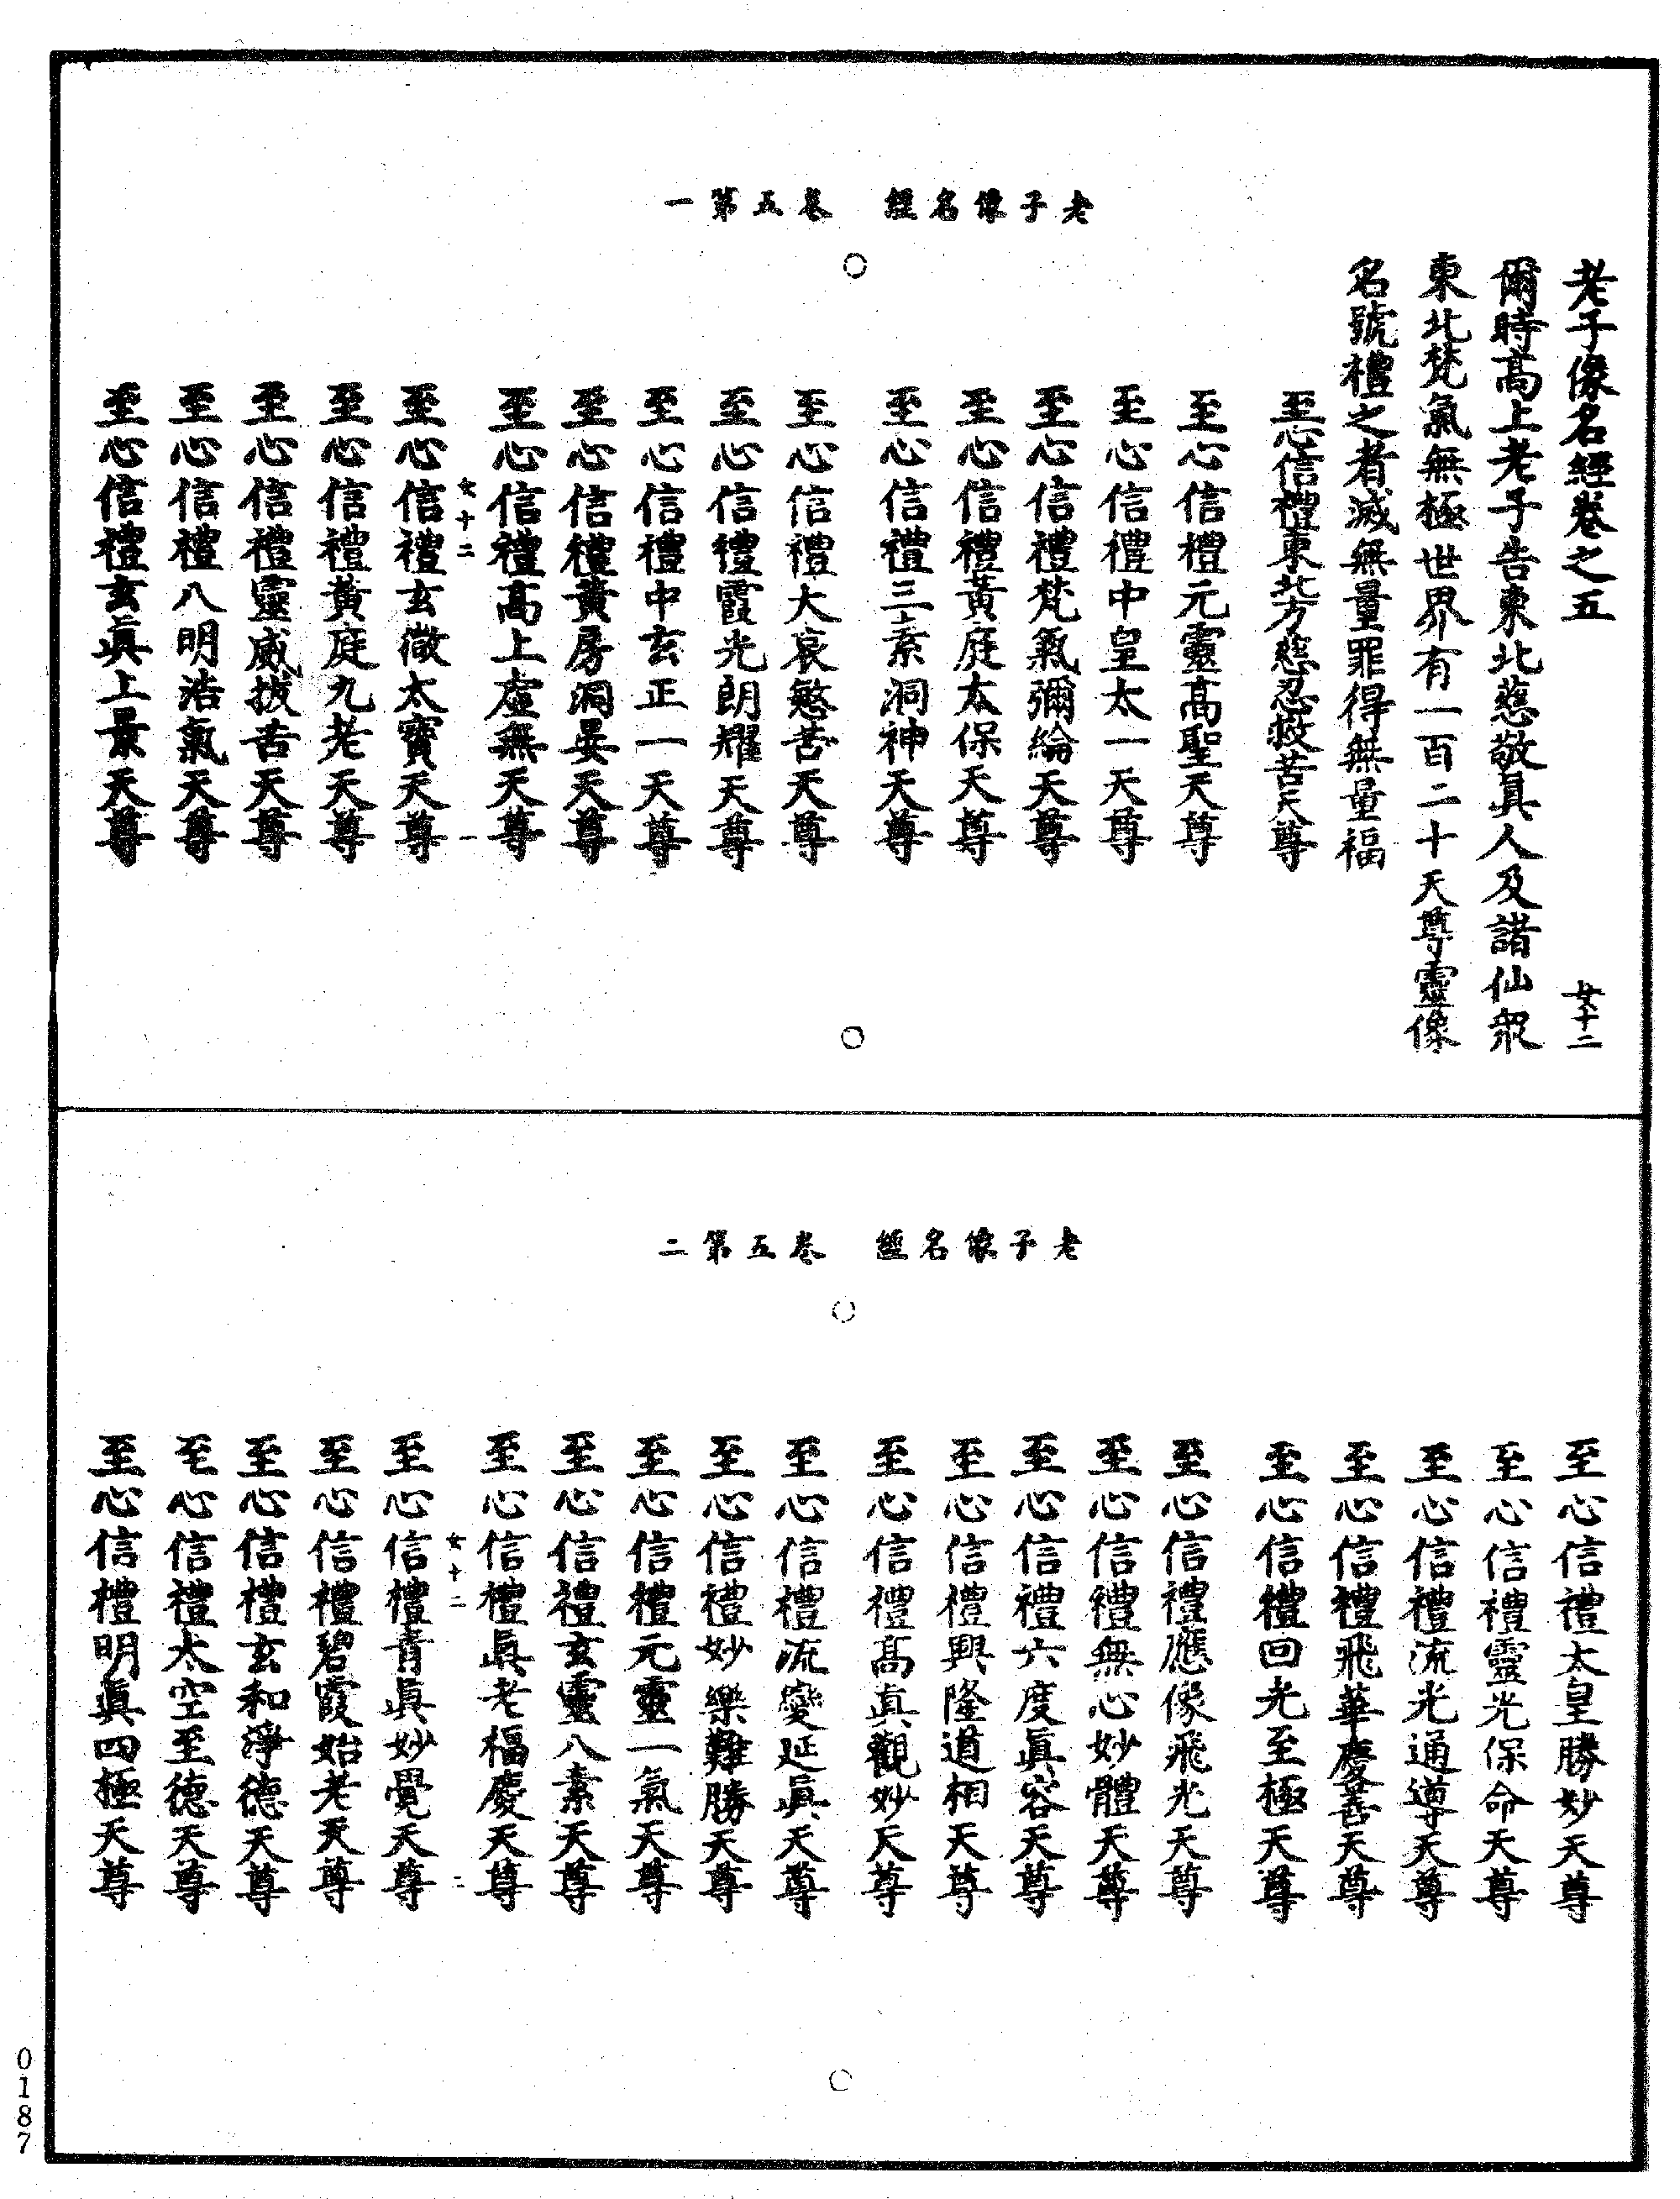 老子像名經　卷五第一
老子像名經卷之五　女十二
爾時高上老子告東北慈敬真人及諸仙眾
東北梵氣無極世界有一百二十天尊靈像
名號禮之者滅無量罪得無量福
至心信禮東北方慈忍救苦天尊
至心信禮元靈高聖天尊
至心信禮中皇太一天尊
至心信禮梵氣彌綸天尊
至心信禮黃庭太保天尊
至心信禮三素洞神天尊
至心信禮大哀愍苦天尊
至心信禮霞光朗耀天尊
至心信禮中玄正一天尊
至心信禮黃房洞晏天尊
至心信禮高上虛無天尊
女十二　一
至心信禮玄徵太寶天尊
至心信禮黃庭九老天尊
至心信禮靈威拔苦天尊
至心信禮八明浩氣天尊
至心信禮玄眞上景天尊
老子像名經　卷五第二
至心信禮太皇勝妙天尊
至心信禮靈光保命天尊
至心信禮流光通導天尊
至心信禮飛華慶善天尊
至心信禮回光至極天尊
至心信禮應像飛光天尊
至心信禮無心妙體天尊
至心信禮六度眞容天尊
至心信禮興隆道相天尊
至心信禮高真觀妙天尊
至心信禮流變延眞天尊
至心信禮妙樂難勝天尊
至心信禮元靈一氣天尊
至心信禮玄靈八素天尊
至心信禮眞老福慶天尊
女十二　二
至心信禮青眞妙覺天尊
至心信禮碧霞始老天尊
至心信禮玄和淨德天尊
至心信禮太空至德天尊
至心信禮明眞四極天尊
0187